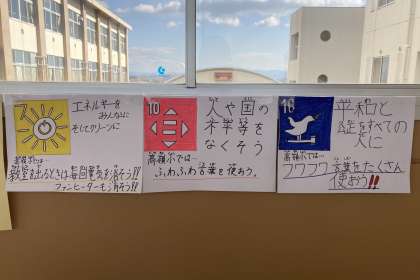 7
エネルギーを
みんなに
そしてクリーンに
高嶺小では…
教室を出るときは毎回電気を消そう!!
ファンヒーターも消そう!!
10
人や国の
不平等を
なくそう
高嶺小では…
ふわふわ言葉を使おう。
16
平和と
公正をすべての
人に
高嶺小では…
フワフワ言葉をたくさん
使おう!!